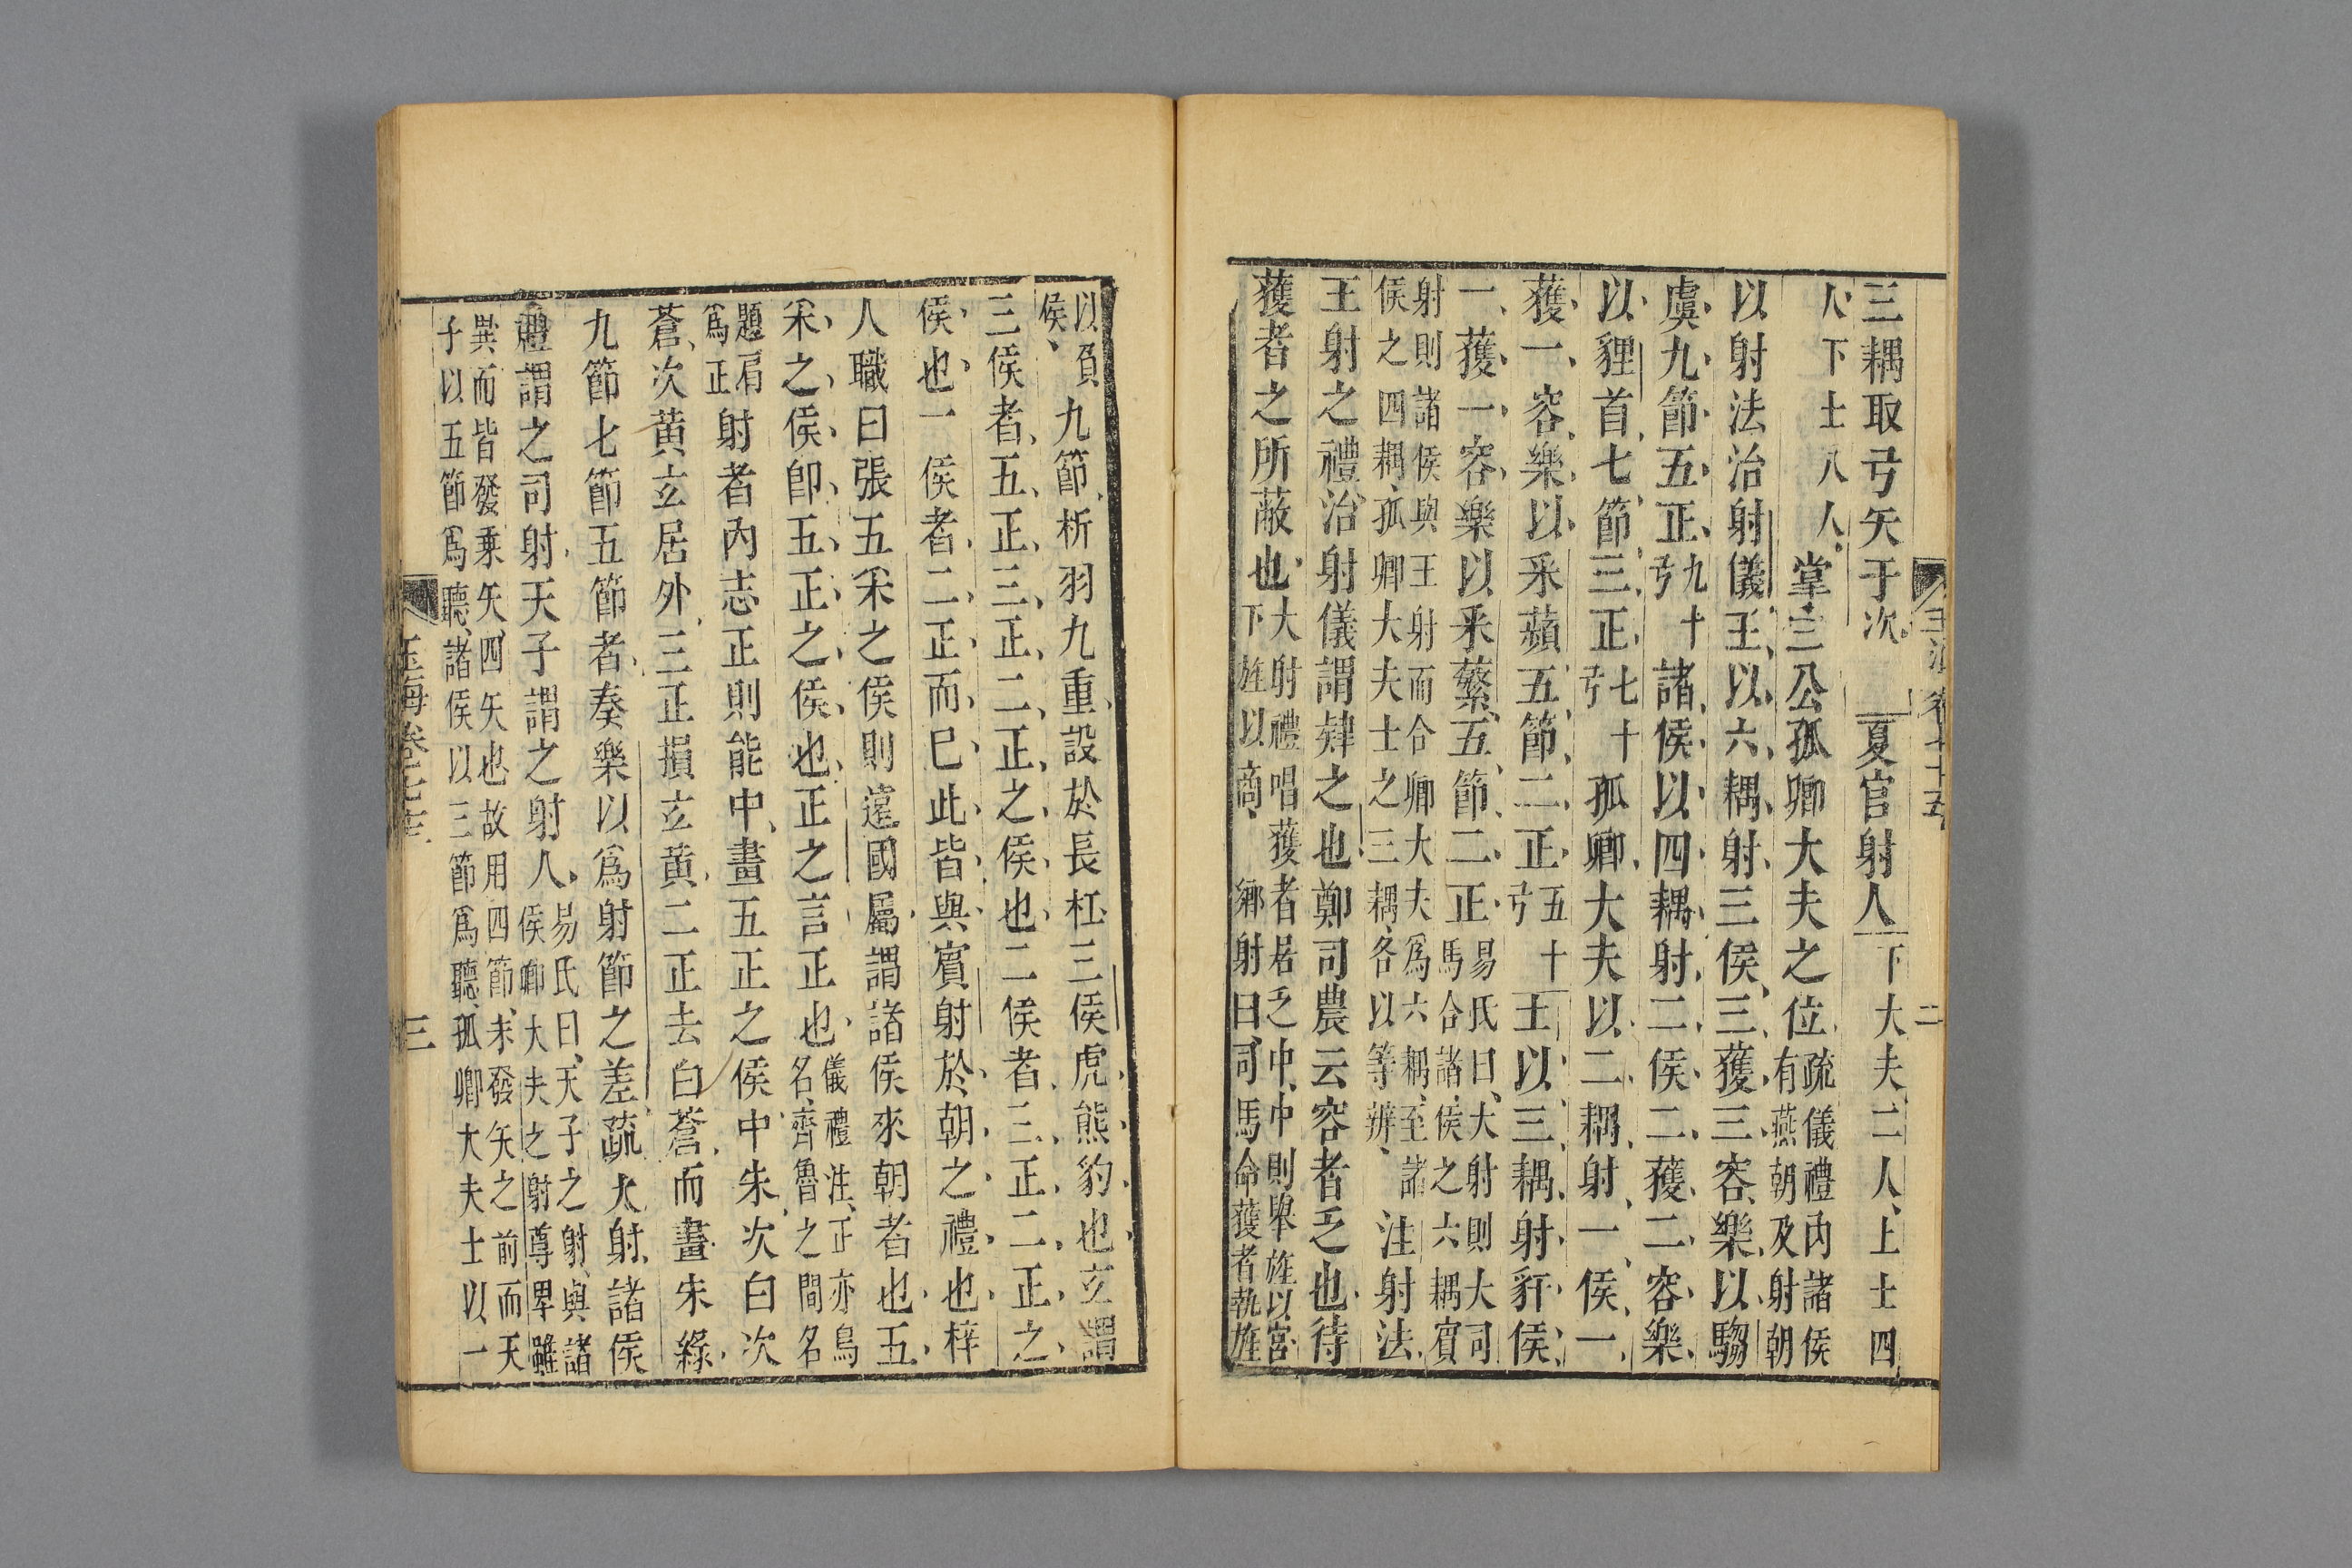 三耦取弓矢于次 夏官射人下大夫二人上士四
人下士八人掌三公孤卿大夫之位疏儀禮內諸侯
有燕朝及射朝
以射法治射儀王以六耦射三侯三獲三容樂以騶
虞九節五正九十弓諸侯以四耦射二侯二獲二容樂
以貍首七節三正七十弓孤卿大夫以二耦射一侯一
獲一容樂以采蘋五節二正五十弓士以三耦射豻侯
一獲一容樂以采蘩五節二正易氏曰大射則大司
馬合諸侯之六耦賓
射則諸侯與王射而合卿大夫為六耦至諸
侯之四耦孤卿大夫士之三耦各以等辨注射法
王射之禮治射儀謂肄之也鄭司農云容者乏也待
獲者之所蔽也大射禮唱獲者居乏中中則舉旌以宮
下旌以商 鄉射曰司馬命獲者執旌
以負
侯九節析羽九重設於長杠三侯虎熊豹也玄謂
三侯者五正三正二正之侯也二侯者三正二正之
侯也一侯者二正而已此皆與賓射於朝之禮也梓
人職曰張五采之侯則遠國屬謂諸侯來朝者也五
采之侯即五正之侯也正之言正也儀禮注正亦鳥
名齊魯之間名
題肩
為正射者內志正則能中畫五正之侯中朱次白次
蒼次黃玄居外三正損玄黃二正去白蒼而畫朱綠
九節七節五節者奏樂以為射節之差疏大射諸侯
禮謂之司射天子謂之射人易氏曰天子之射與諸
侯卿大夫之射尊卑雖
異而皆發乘矢四矢也故用四節未發矢之前而天
子以五節為聽諸侯以三節為聽孤卿大夫士以一
玉海卷七十五
三